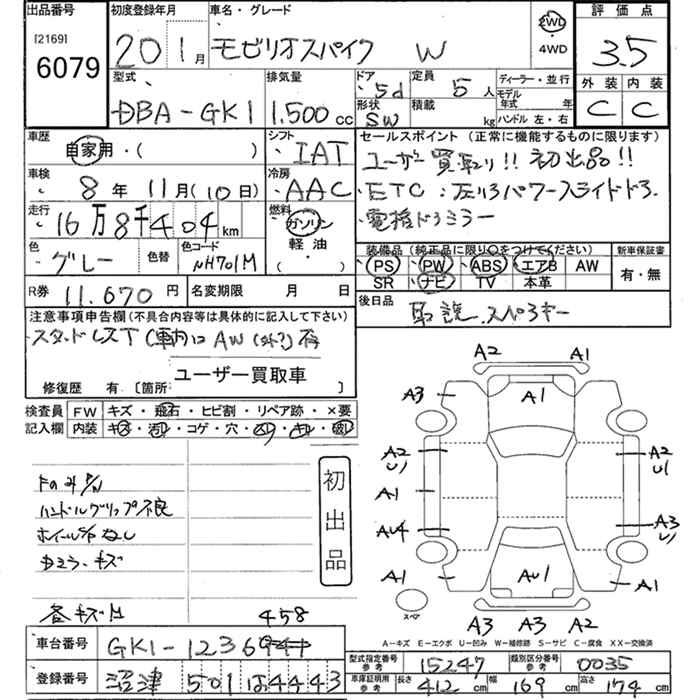 出品番号 初度登録年月 車名・グレード 評価点
[2169] 6079 20 1月 モビリオスパイク W 2WD・4WD 3.5
型式 排気量 ドア 定員 ディーラー・並行 外装 内装
DBA-GK1 1.500cc 5d 5人 モデル年式 年 C C
形状 SW 積載 kg ハンドル 左・右
車歴 シフト セールスポイント (正常に機能するものに限ります)
自家用・( ) IAT ユーザー買取り!! 初出品!!
車検 冷房
8年11月(10日) AAC ETC:左リヤパワースライドドア
走行 燃料
16万8千404km ガソリン 電格ドアミラー
色 色替 色コード 軽油・( ) 装備品(純正品に限り○をつけてください) 新車保証書
グレー NH701M PS PW ABS エアB AW 有・無
SR ナビ TV 本革
R券 11.670円 名変期限 月 日 後日品
取説、スペアキー
注意事項申告欄(不具合内容等は具体的に記入して下さい)
スタッドレスT(車内にAW(外?)有
ユーザー買取車
修復歴 有〔箇所
検査員 FW キズ・飛石・ヒビ割・リペア跡・×要
記入欄 内装 キズ・汚レ・コゲ・穴・スレ・キレ・破レ
初出品
ハンドルグリップ不良
ホイールCapなし
ミラーキズ
各キズ凹 458
A2 A1
A3 A1
A2 U1 A2 U1
A1
AU4 A3 U1
A1 AU1 A1
スペア A3 A3 A2
A-キズ E-エクボ U-凹み W-補修跡 S-サビ C-腐食 XX-交換済
車台番号 GK1-1236
型式指定番号参考 15247 類別区分番号参考 0035
登録番号 沼津 501 は 4443
車庫証明用参考 長さ 412cm 幅 169cm 高さ 174cm